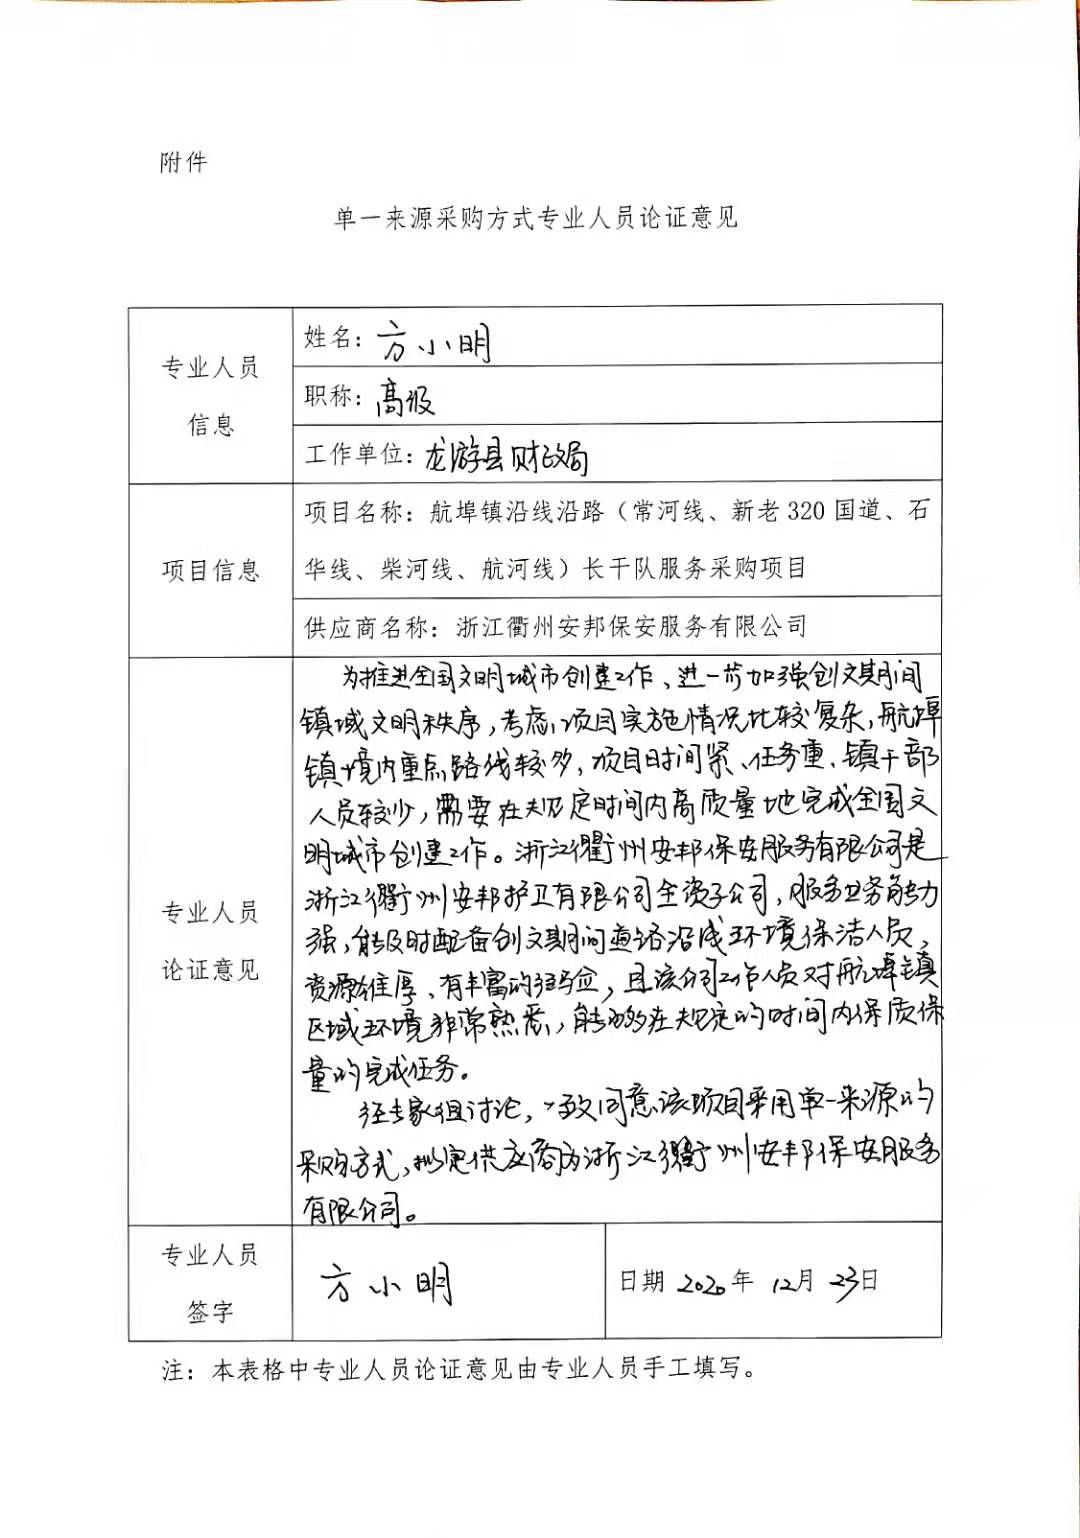 附件
单一来源采购方式专业人员论证意见
专业人员
信息
姓名：方小明
职称：高级
工作单位：龙游县财政局
项目信息
项目名称：航埠镇沿线沿路（常河线、新老320国道、石
华线、柴河线、航河线）长干队服务采购项目
供应商名称：浙江衢州安邦保安服务有限公司
专业人员
论证意见
为推进全国文明城市创建工作、进一步加强创文期间
镇域文明秩序，考虑项目实施情况比较复杂，航埠
镇境内重点路线较多，项目时间紧、任务重、镇干部
人员较少，需要在规定时间内高质量地完成全国文
明城市创建工作。浙江衢州安邦保安服务有限公司是
浙江衢州安邦护卫有限公司全资子公司，服务业务能力
强，能及时配备创文期间道路沿线环境保洁人员，
资源雄厚、有丰富的经验，且该公司工作人员对航埠镇
区域环境非常熟悉，能够在规定的时间内保质保
量的完成任务。
经专家组讨论，一致同意该项目采用单一来源的
采购方式，拟定供应商为浙江衢州安邦保安服务
有限公司。
专业人员
签字
方小明
日期 2020年 12月 23日
注：本表格中专业人员论证意见由专业人员手工填写。